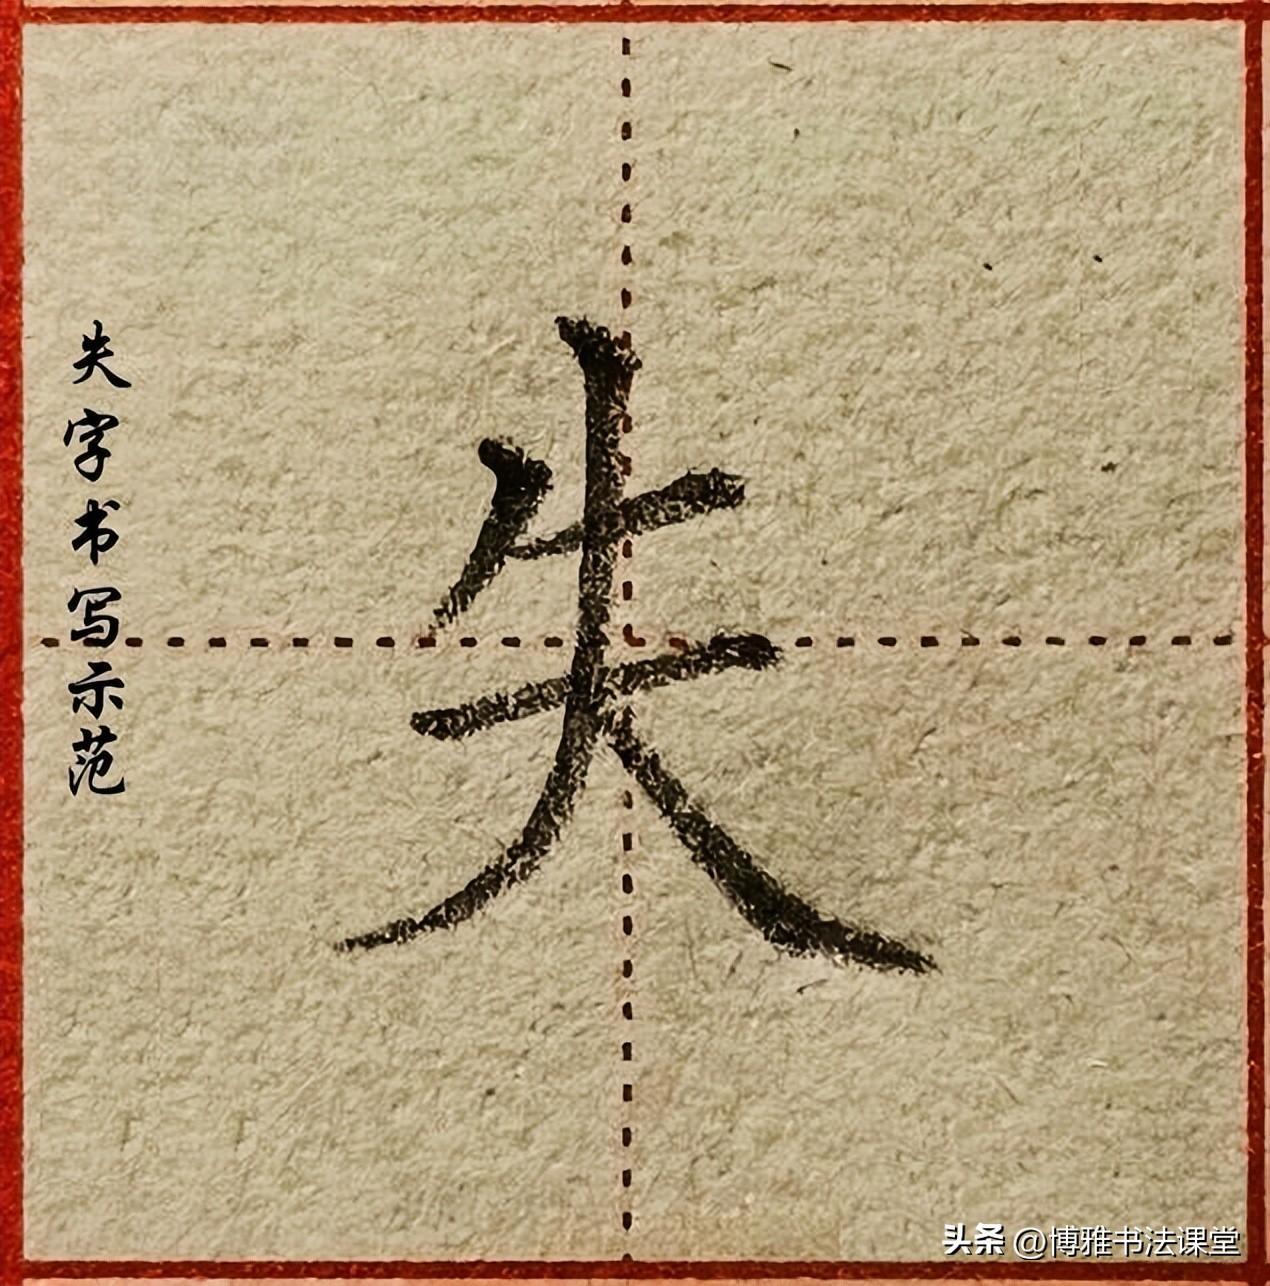 失字书写示范
失
头条 @博雅书法课堂